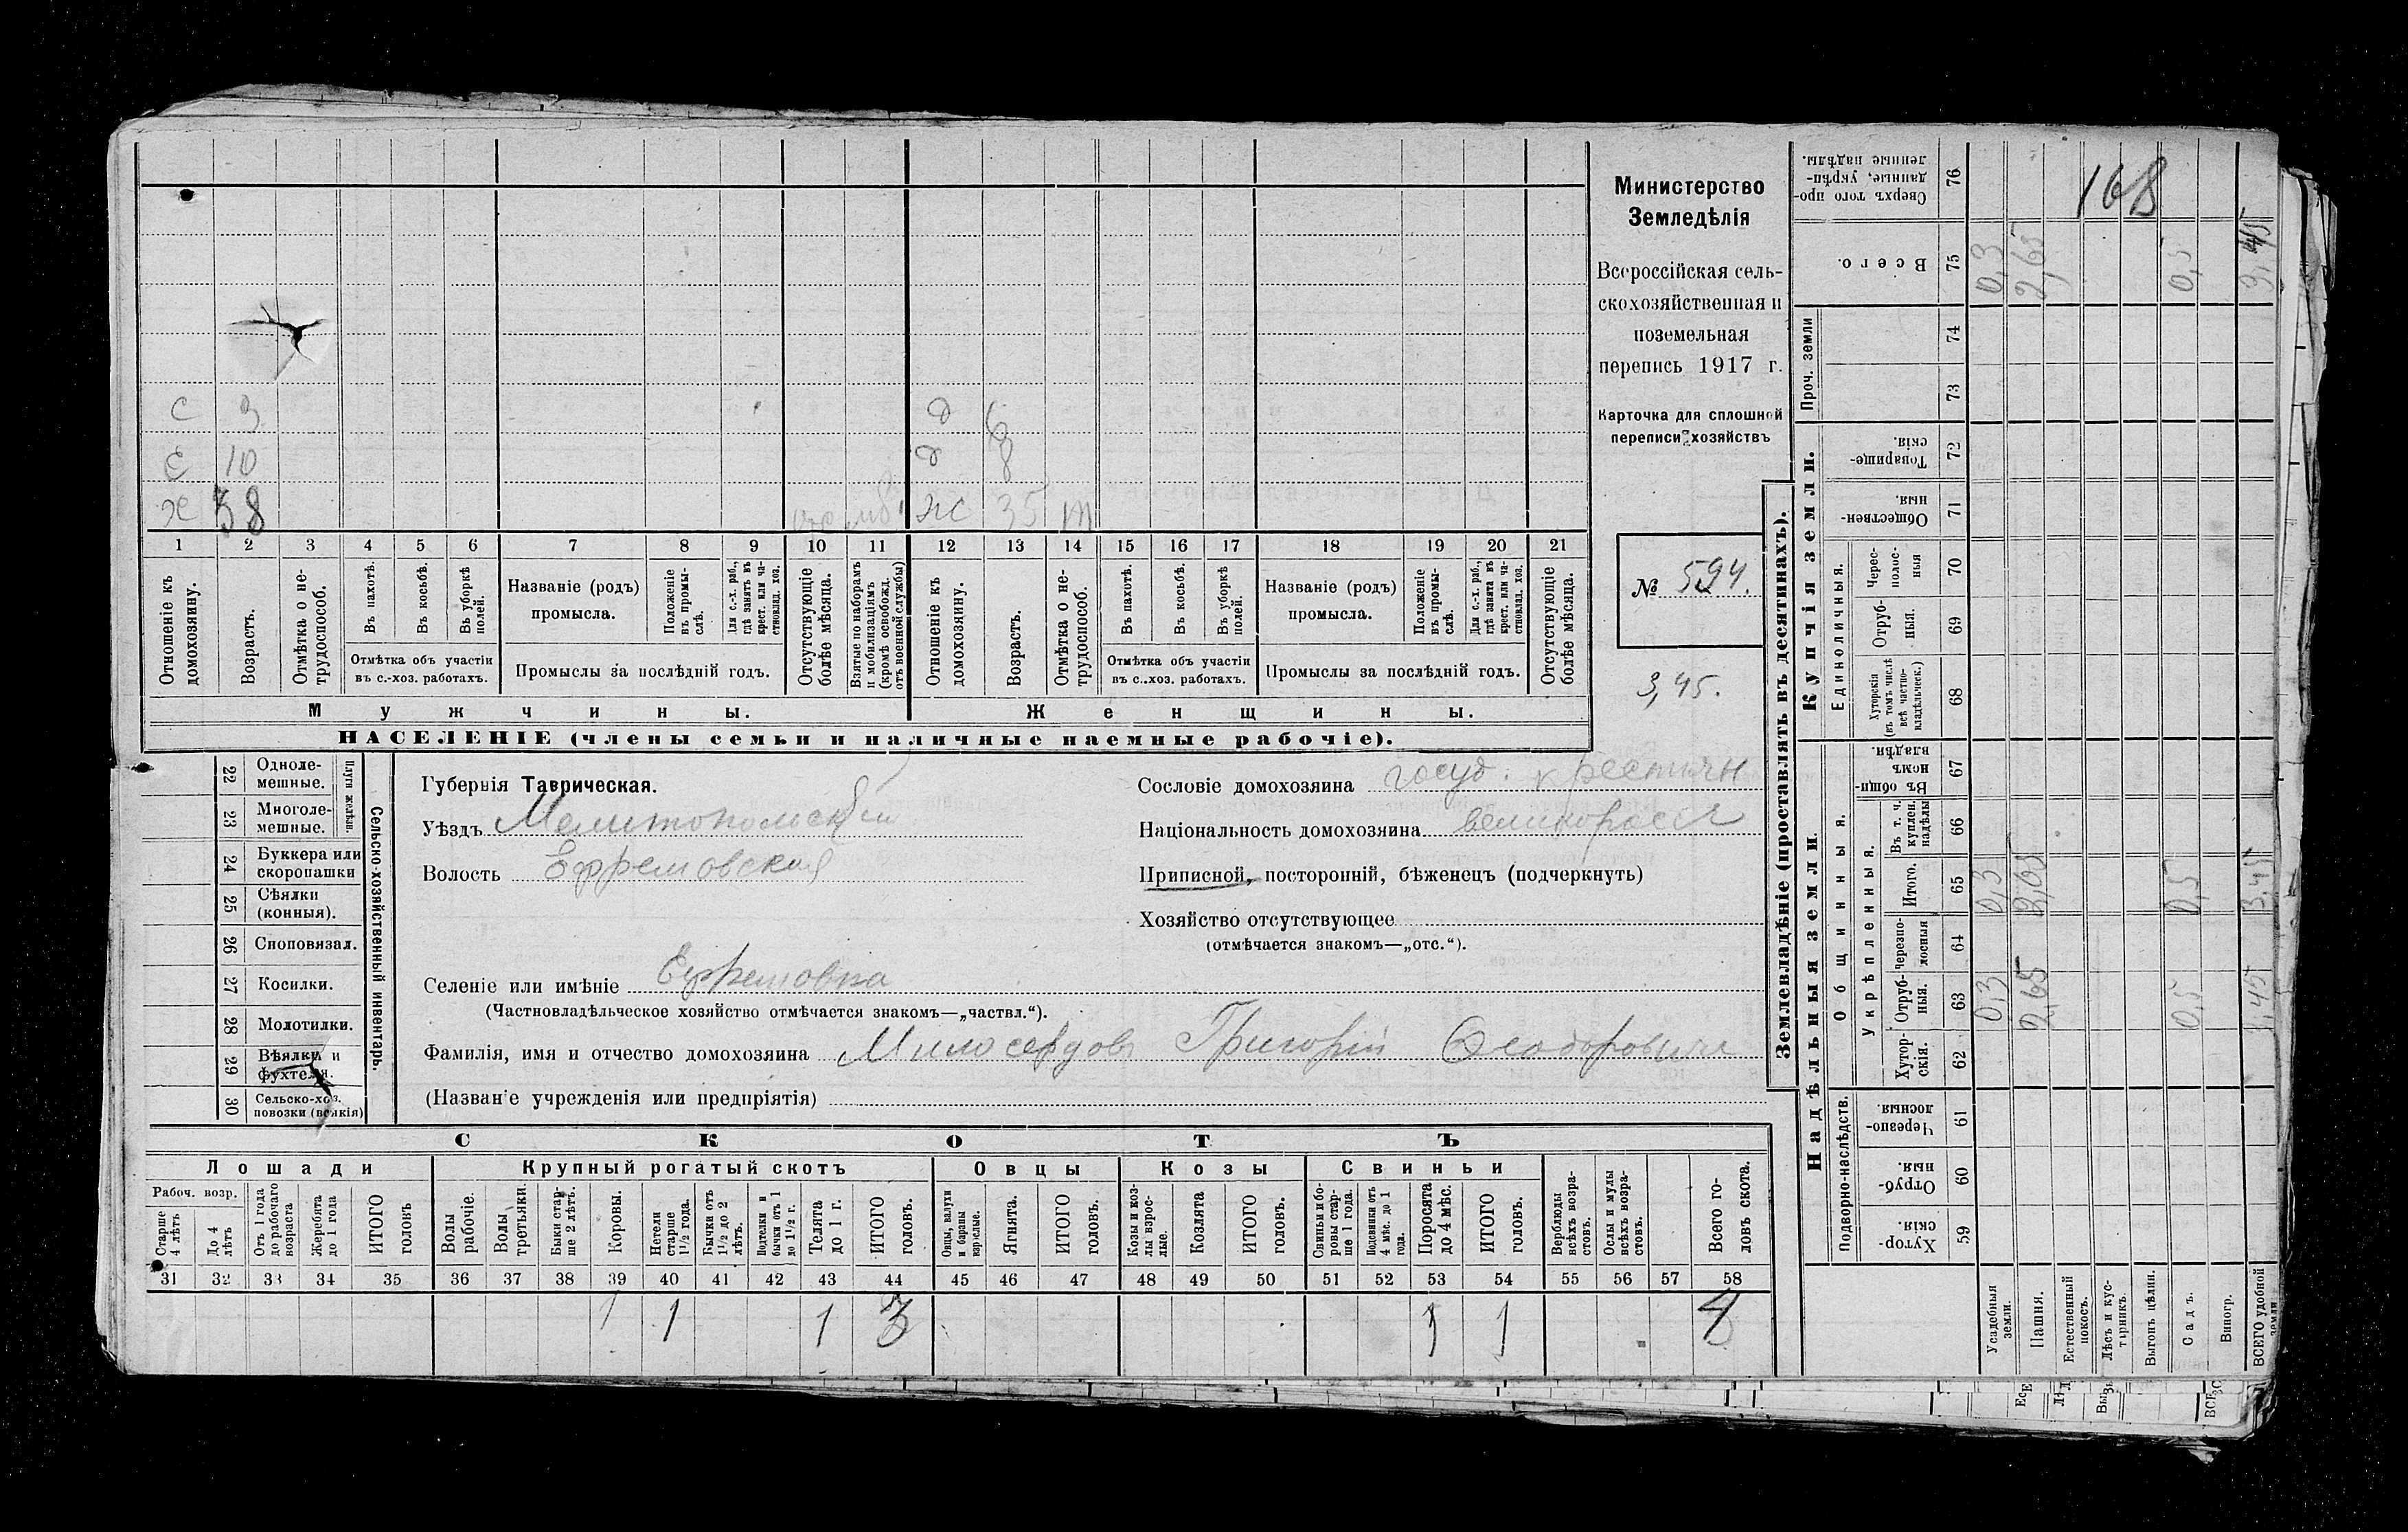 С 3 д 6
С 10 д 8
Х 38 ж 35 m
1 2 3 4 5 6 7 8 9 10 11 12 13 14 15 16 17 18 19 20 21
Отношеніе къ домохозяину.
Возрастъ.
Отмѣтка о не-трудоспособ.
Въ пахотѣ.
Въ косьбѣ.
Въ уборкѣ полей.
Отмѣтка объ участіи
въ с.-хоз. работахъ.
Названіе (родъ)
промысла.
Положеніе въ промы-слѣ.
Для с.-х. раб., гдѣ занятъ въ крест. или ча-стновлад. хоз.
Промыслы за послѣдній годъ.
Отсутствующіе болѣе мѣсяца.
Взятые по наборамъ и мобилизаціямъ (кромѣ освобожд. отъ военной службы)
Отношеніе къ домохозяину.
Возрастъ.
Отмѣтка о не-трудоспособ.
Въ пахотѣ.
Въ косьбѣ.
Въ уборкѣ полей.
Отмѣтка объ участіи
въ с..хоз. работахъ.
Названіе (родъ)
промысла.
Положеніе въ промы-слѣ.
Для с.-х. раб., гдѣ занята въ крест. или ча-стновлад. хоз.
Промыслы за послѣдній годъ.
Отсутствующіе болѣе мѣсяца.
Мужчины.
Женщины.
НАСЕЛЕНІЕ (члены семьи и наличные наемные рабочіе).
Министерство
Земледѣлія
Всероссійская сель-
скохозяйственная и
поземельная
перепись 1917 г.
Карточка для сплошной
переписи хозяйствъ
№ 594.
3,45.
22 Одноле-мешные.
23 Многоле-мешные.
Плуги желѣзн.
24 Буккера или скоропашки
25 Сѣялки (конныя).
26 Сноповязал.
27 Косилки.
28 Молотилки.
29 Вѣялки и фухтеля.
30 Сельско-хоз. повозки (всякія)
Сельско-хозяйственный инвентарь.
Губернія Таврическая.
Уѣздъ Мелитопольскій
Волость Ефремовская
Селеніе или имѣніе Ефремовка
(Частновладѣльческое хозяйство отмѣчается знакомъ—„частвл.“).
Фамилія, имя и отчество домохозяина Милосердовъ Григорій Ѳеодоровичъ
(Названіе учрежденія или предпріятія)
Сословіе домохозяина госуд. крестьян
Національность домохозяина великоросс
Приписной, посторонній, бѣженецъ (подчеркнуть)
Хозяйство отсутствующее
(отмѣчается знакомъ—„отс.“).
СКОТЪ
Лошади
Крупный рогатый скотъ
Овцы
Козы
Свиньи
Рабоч. возр.
Старше 4 лѣтъ
До 4 лѣтъ
Отъ 1 года до рабочаго возраста
Жеребята до 1 года
ИТОГО головъ
Волы рабочіе.
Волы третьяки.
Быки стар-ше 2 лѣтъ.
Коровы.
Нетели старше 1½ года.
Бычки отъ 1½ до 2 лѣтъ.
Подтелки и бычки отъ 1 до 1½ г.
Телята до 1 г.
ИТОГО головъ.
Овцы, валухи и бараны взрослые.
Ягнята.
ИТОГО головъ.
Козы и коз-лы взрос-лые.
Козлята
ИТОГО головъ.
Свиньи и бо-ровы стар-ше 1 года.
Подсвинки отъ 4 мѣс. до 1 года.
Поросята до 4 мѣс.
ИТОГО головъ.
Верблюды всѣхъ возра-стовъ.
Ослы и мулы всѣхъ возра-стовъ.
Всего го-ловъ скота.
31 32 33 34 35 36 37 38 39 40 41 42 43 44 45 46 47 48 49 50 51 52 53 54 55 56 57 58
1 1 1 3 1 1 4
Землевладѣніе (проставлять въ десятинахъ).
Надѣльныя земли.
Купчія земли.
Проч. земли
Подворно-наслѣдств.
Общинныя.
Укрѣпленныя.
Единоличныя.
Хутор-скія. 59
Отруб-ныя. 60
Черезпо-лосныя. 61
Хутор-скія. 62
Отруб-ныя. 63
Черезпо-лосныя 64
Итого. 65
Въ т. ч. куплен. надѣлы 66
Въ общи-номъ владѣн. 67
Хуторскія (въ томъ числѣ всѣ частно-владѣльческ.) 68
Отруб-ныя. 69
Черес-полос-ныя 70
Обществен-ныя. 71
Товарище-скія. 72
73
74
Всего. 75
Сверхъ того про-данные, укрѣп-ленные надѣлы. 76
168
Усадебныя земли. 0,3 0,3 0,3
Пашня. 2,65 2,65 2,65
Естественный покосъ.
Лѣсъ и кус-тарникъ.
Выгонъ цѣлин.
Садъ. 0,5 0,5 0,5
Виногр.
ВСЕГО удобной земли 3,45 3,45 3,45